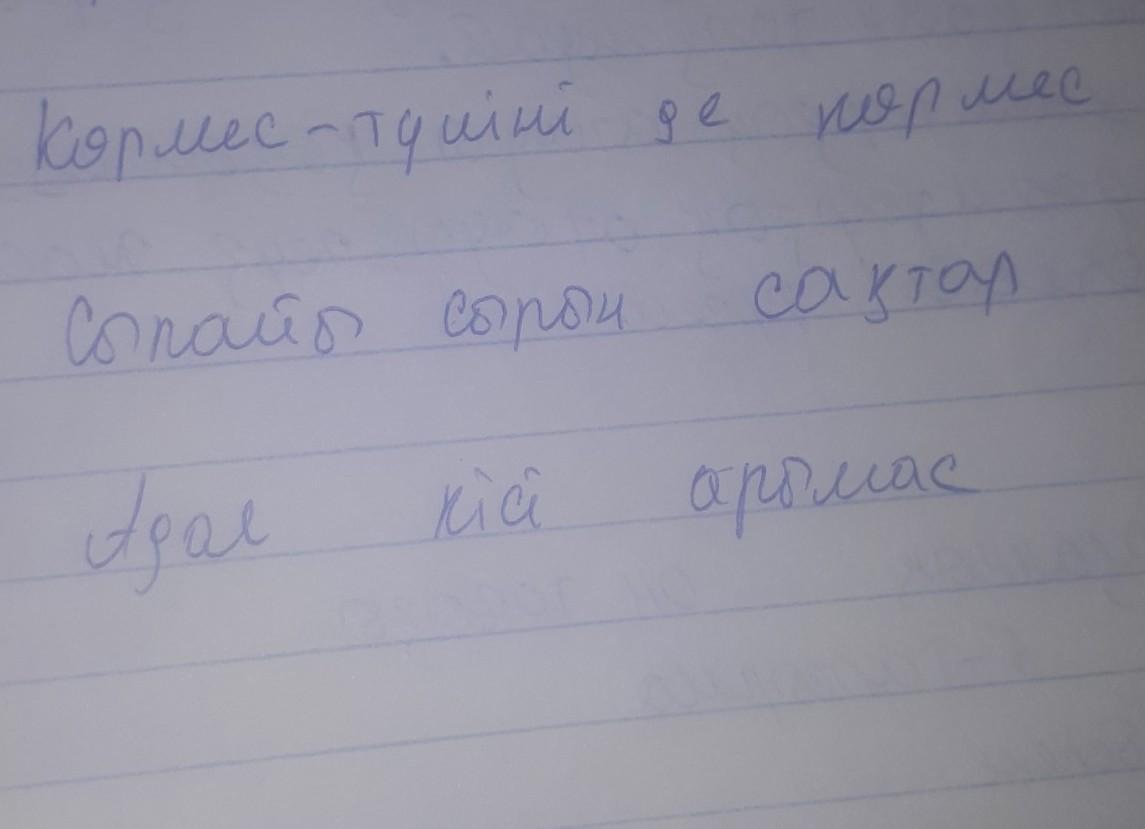 Көрмес-түйіні де көрмес
Сыпайы сырын сақтар
Адал кісі арымас